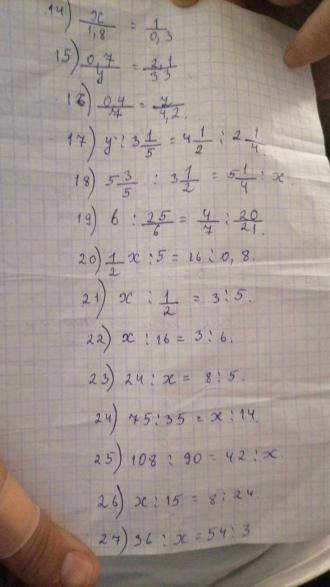 14) x/1,8 = 1/0,3
15) 0,7/y = 2,1/33
16) 0,4/7 = 7/4,2.
17) y : 3 1/5 = 4 1/2 : 2 1/4.
18) 5 3/5 : 3 1/2 = 5 1/4 : x.
19) в : 25/6 = 4/7 : 20/21.
20) 1/2 x : 5 = 16 : 0,8.
21) x : 1/2 = 3 : 5.
22) x : 16 = 3 : 6.
23) 24 : x = 8 : 5.
24) 75 : 35 = x : 14.
25) 108 : 90 = 42 : x.
26) x : 15 = 8 : 24.
27) 36 : x = 54 : 3